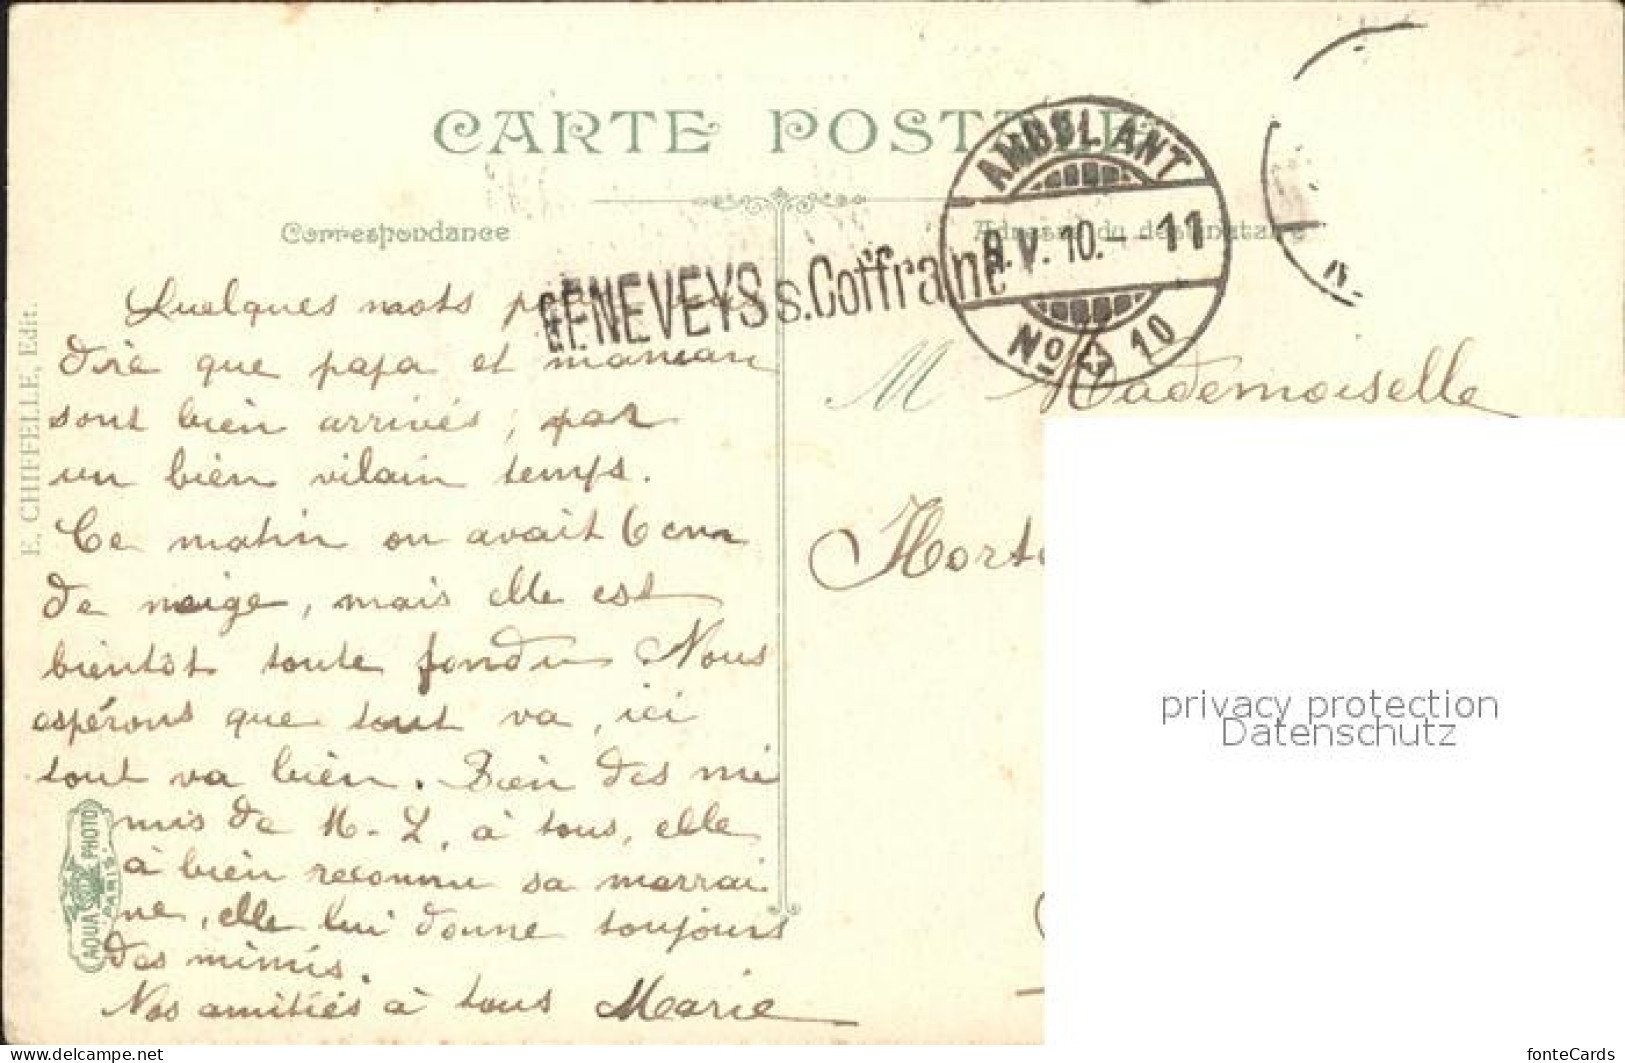 CARTE POSTALE
Correspondance
Adresse du destinataire
AMBULANT
9.V.10.- 11
No 10
GENEVEYS s. Coffrane
Quelques mots pour vous
dire que papa et maman
sont bien arrivés, par
un bien vilain temps.
Ce matin on avait 6 cm
de neige, mais elle est
bientôt toute fondue Nous
espérons que tout va, ici
tout va bien. Bien des mi
mis de M-L. à tous, elle
à bien reconnu sa marrai
ne, elle lui donne toujours
des mimis.
Nos amitiés à tous Marie
M Mademoiselle
Horte
E. CHIFFELLE, Edit.
AQUA PHOTO
PARIS
privacy protection
Datenschutz
https://www.ansichtskarten-lexikon.de/
fonteCards